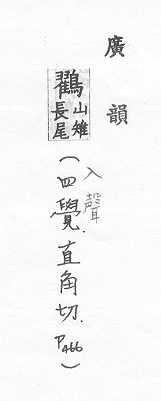 廣韻
鸐山雉長尾
(入聲
四覺.直角切.P466)